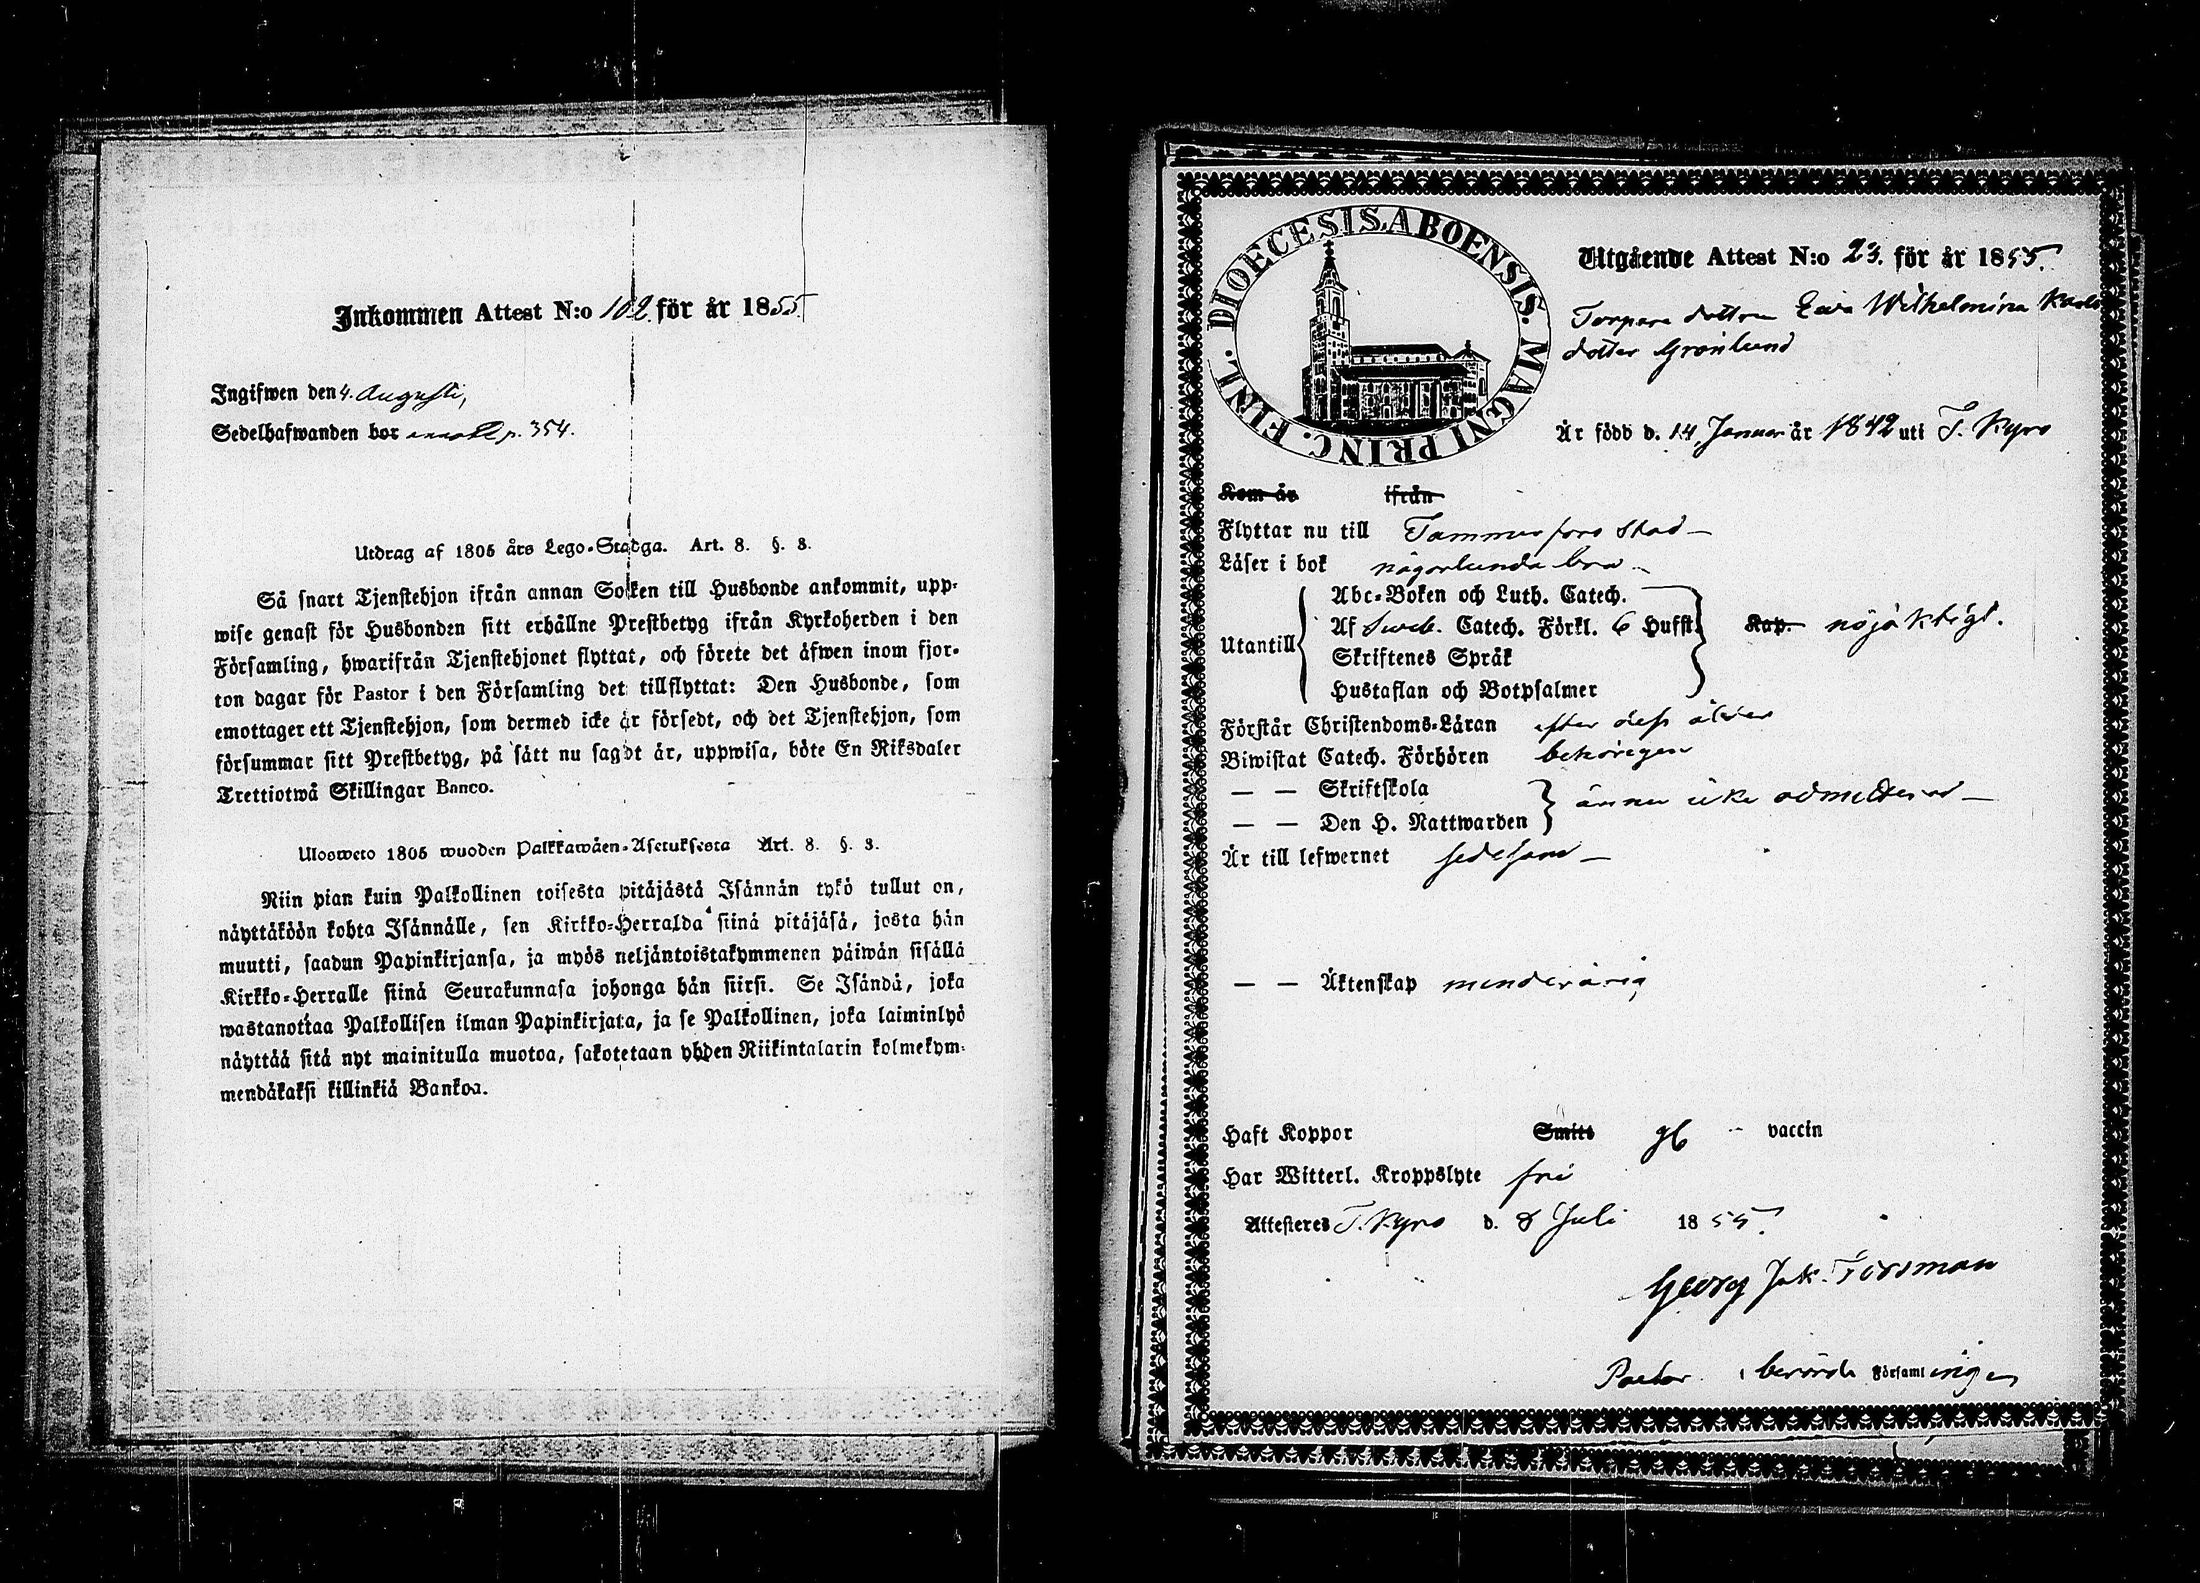 Inkommen Attest N:o 102 för år 1855.
Ingifwen den 4. Augusti,
Sedelhafwanden bor p. 354.
Utdrag af 1805 års Lego-Stadga. Art. 8. §. 3.
Så snart Tjenstehjon ifrån annan Socken till Husbonde ankommit, upp-
wise genast för Husbonden sitt erhållne Prestbetyg ifrån Kyrkoherden i den
Församling, hwarifrån Tjenstehjonet flyttat, och förete det äfwen inom fjor-
ton dagar för Pastor i den Församling det tillflyttat: Den Husbonde, som
emottager ett Tjenstehjon, som dermed icke är försedt, och det Tjenstehjon, som
försummar sitt Prestbetyg, på sätt nu sagdt är, uppwisa, böte En Riksdaler
Trettiotwå Skillingar Banco.
Ulosweto 1805 wuoden Palkkawäen-Asetuksesta Art. 8. §. 3.
Niin pian kuin Palkollinen toisesta pitäjästä Isännän tykö tullut on,
näyttäköön kohta Isännälle, sen Kirkko-Herralda siinä pitäjäsä, josta hän
muutti, saadun Papinkirjansa, ja myös neljäntoistakymmenen päiwän sisällä
Kirkko-Herralle siinä Seurakunnasa johonga hän siirsi. Se Isändä, joka
wastanottaa Palkollisen ilman Papinkirjata, ja se Palkollinen, joka laiminlyö
näyttää sitä nyt mainitulla muotoa, sakotetaan yhden Riikintalarin kolmekym-
mendäkaksi killinkiä Bankoa.
DIOECESIS ABOENSIS. MAGNI PRINC. FINL.
Utgående Attest N:o 23. för år 1855.
Torpare dottren Eva Wilhelmina Karls
dotter Grönlund
Är född d. 14 Januari år 1842 uti T. Kyro
Kom år ifrån
Flyttar nu till Tammerfors Stad
Läser i bok någorlunda bra
Abc-Boken och Luth. Catech.
Utantill Af Sweb. Catech. Förkl. 6 Hufst. Kap. nöjaktigt.
Skriftenes Språk
Hustaflan och Botpsalmer
Förstår Christendoms-Läran efter dess ålder
Biwistat Catech. Förhören behörigen
— — Skriftskola
— — Den H. Nattwarden ännu icke admitterad
Är till lefwernet sedesam
— — Äktenskap minderårig
Haft Koppor Smitt gb vaccin
Har Witterl. Kroppslyte fri
Attesteres T. Kyro d. 8 Juli 1855.
Georg Jak. Forsman
Pastor i berörde Församlingen